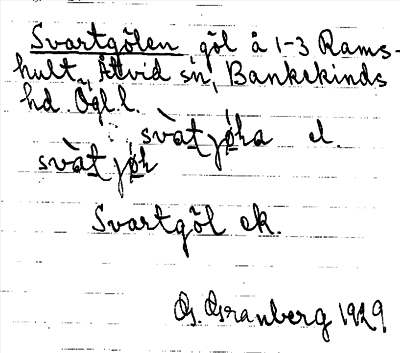 Svartgölen, göl å 1-3 Rams-
hult, Åtvid sn, Bankekinds
hd. Ögl l.
svàtjø̀ha el.
svàtjøh
Svartgöl ek.
G. Granberg 1929